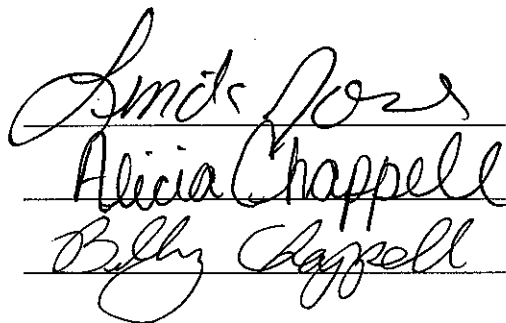 Linda Doss
Alicia Chappell
Billy Chappell